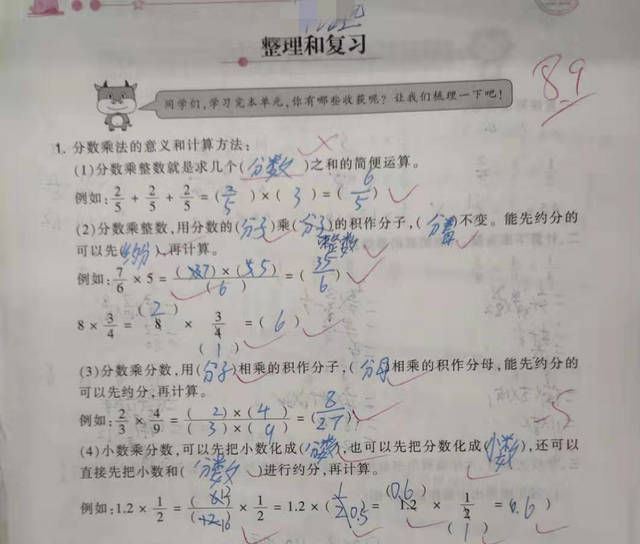 整理和复习
89
同学们,学习完本单元,你有哪些收获呢?让我们梳理一下吧!
1. 分数乘法的意义和计算方法:
(1)分数乘整数就是求几个(分数)之和的简便运算。
例如: 2/5 + 2/5 + 2/5 = (2/5)×(3)=(6/5)
(2)分数乘整数,用分数的(分子)乘(分子)的积作分子,(分母)不变。能先约分的
整数
可以先(约分),再计算。
例如: 7/6 × 5 = (7)×(5)/(6) = (35/6)
(2)
8 × 3/4 = 8 × 3/4 = (6)
(1)
(3)分数乘分数,用(分子)相乘的积作分子,(分母)相乘的积作分母,能先约分的
可以先约分,再计算。
例如: 2/3 × 4/9 = (2)×(4)/(3)×(9) = (8/27)
-5
(4)小数乘分数,可以先把小数化成(分数),也可以先把分数化成(小数),还可以
直接先把小数和(分数)进行约分,再计算。
(0.6)
例如: 1.2 × 1/2 = × 1/2 = 1.2 × (0.5) = 1.2 × 1/2 = (0.6)
(1)